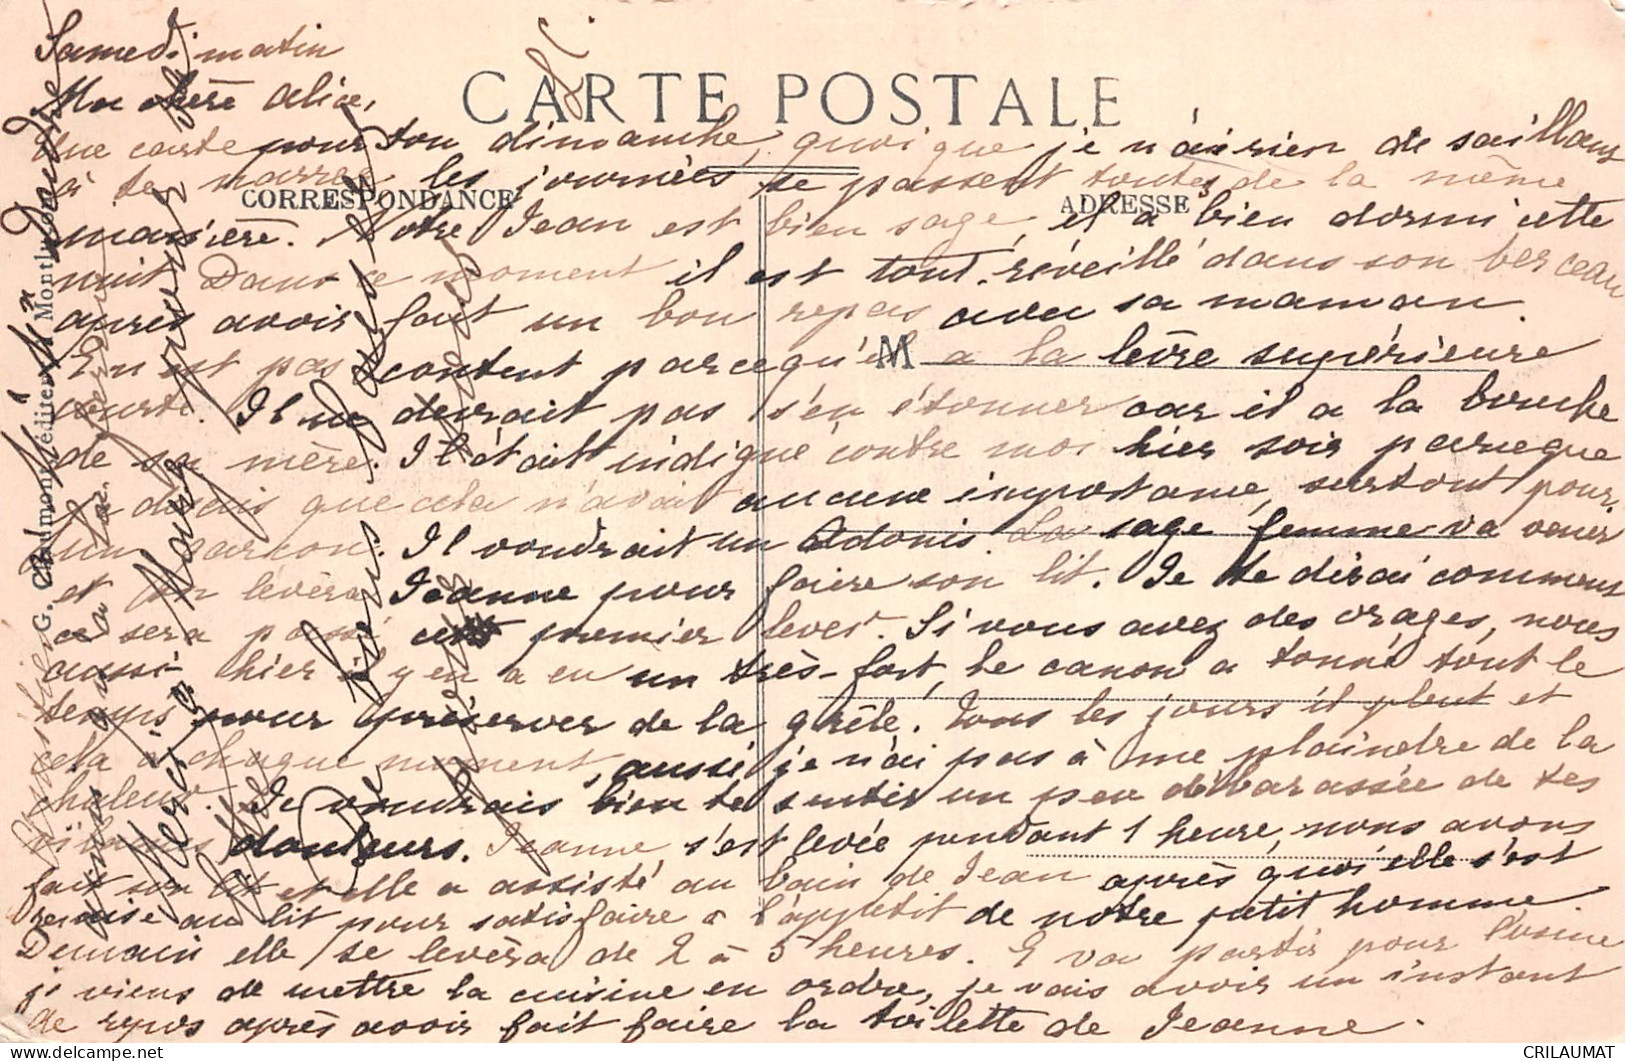 Samedi matin
CARTE POSTALE
Ma chère Alice,
Une carte pour ton dimanche, quoique je n'ai rien de saillant
à te narrer les journées se passent toutes de la même
CORRESPONDANCE
ADRESSE
manière. Notre Jean est bien sage, il a bien dormi cette
nuit. Dans ce moment il est tout réveillé dans son berceau
après avoir fait un bon repas avec sa maman.
E n'est pas content parcequ'il a la lèvre supérieure
M
courte. Il ne devrait pas s'en étonner car il a la bouche
de sa mère. Il était indigné contre moi hier soir parceque
je disais que cela n'avait aucune importance, surtout pour
un garçon. Il voudrait un Adonis. La sage femme va venir
et on lèvera Jeanne pour faire son lit. Je te dirai comment
ce sera passé cette premier lever. Si vous avez des orages, nous
aussi hier il y en a eu un très-fort, le canon a tonné tout le
temps pour préserver de la grêle. Tous les jours il pleut et
cela à chaque moment, aussi je n'ai pas à me plaindre de la
chaleur. Je voudrais bien te sentir un peu débarassée de tes
vilaines douleurs. Jeanne s'est levée pendant 1 heure, nous avons
fait son lit et elle a assisté au bain de Jean après quoi elle s'est
remise au lit pour satisfaire à l'appétit de notre petit homme.
Demain elle se lèvera de 2 à 5 heures. E va partir pour l'usine
je viens de mettre la cuisine en ordre, je vais avoir un instant
de repos après avoir fait faire la toilette de Jeanne.
G. Chaumont, éditeur, Montluçon
Merci à
CRILAUMAT